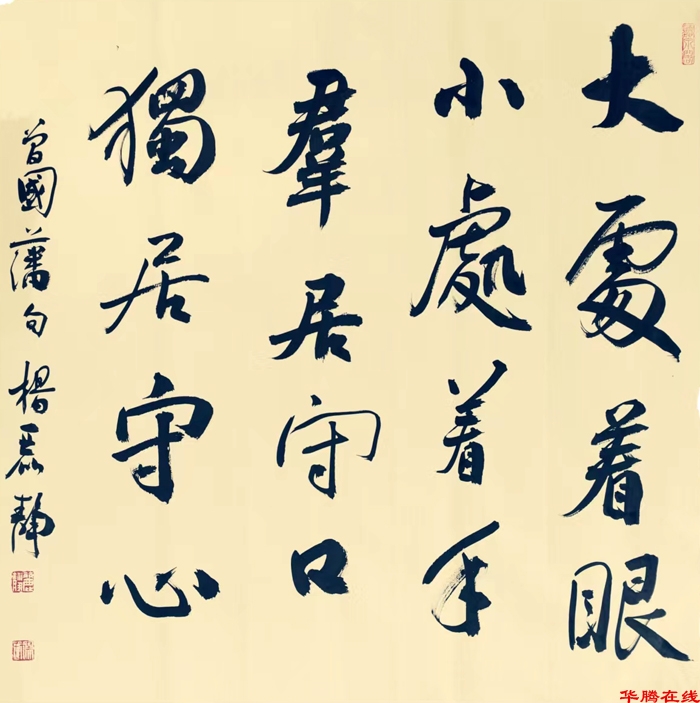 大處着眼
小處着手
羣居守口
獨居守心
曾國藩句 楊磊靜
华腾在线